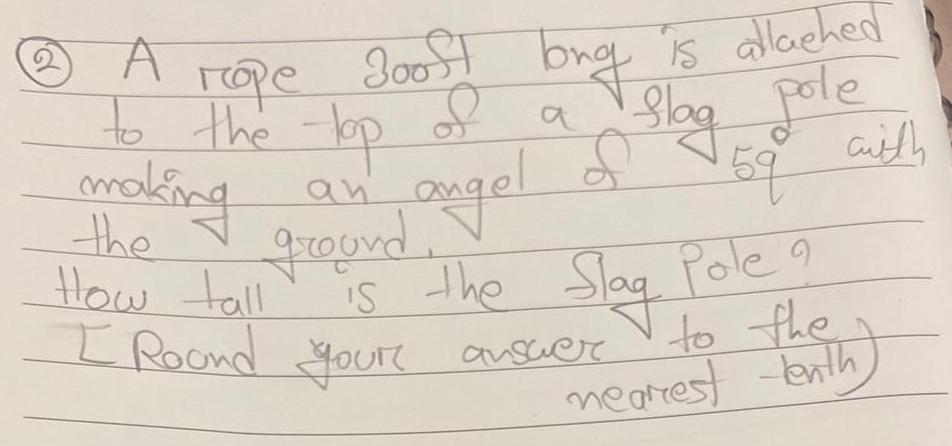 ② A rope 300ft long is attached
to the top of a flag pole
making an angel of 59° with
the ground.
How tall is the flag Pole?
[Round your answer to the
nearest tenth)